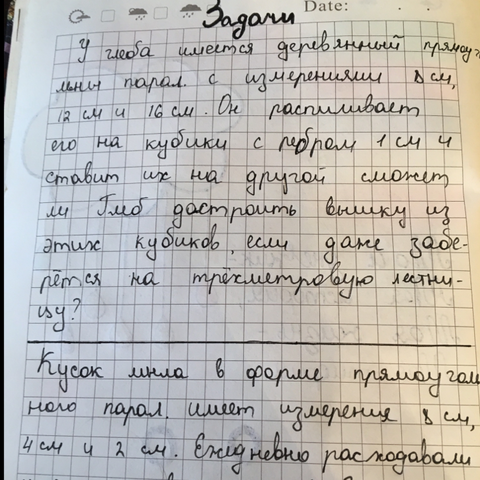 Date:
Задачи
У глеба имеется деревянный прямоуг
льны парал. с измерениями 8 см,
12 см и 16 см. Он распиливает
его на кубики с ребром 1 см и
ставит их на другой сможет
ли Глеб достроить вышку из
этих кубиков, если даже забе-
рётся на трёхметровую лестни-
цу?
Кусок мыла в форме прямоугол
ного парал. имеет измерения 8 см,
4 см и 2 см. Ежедневно расходавали